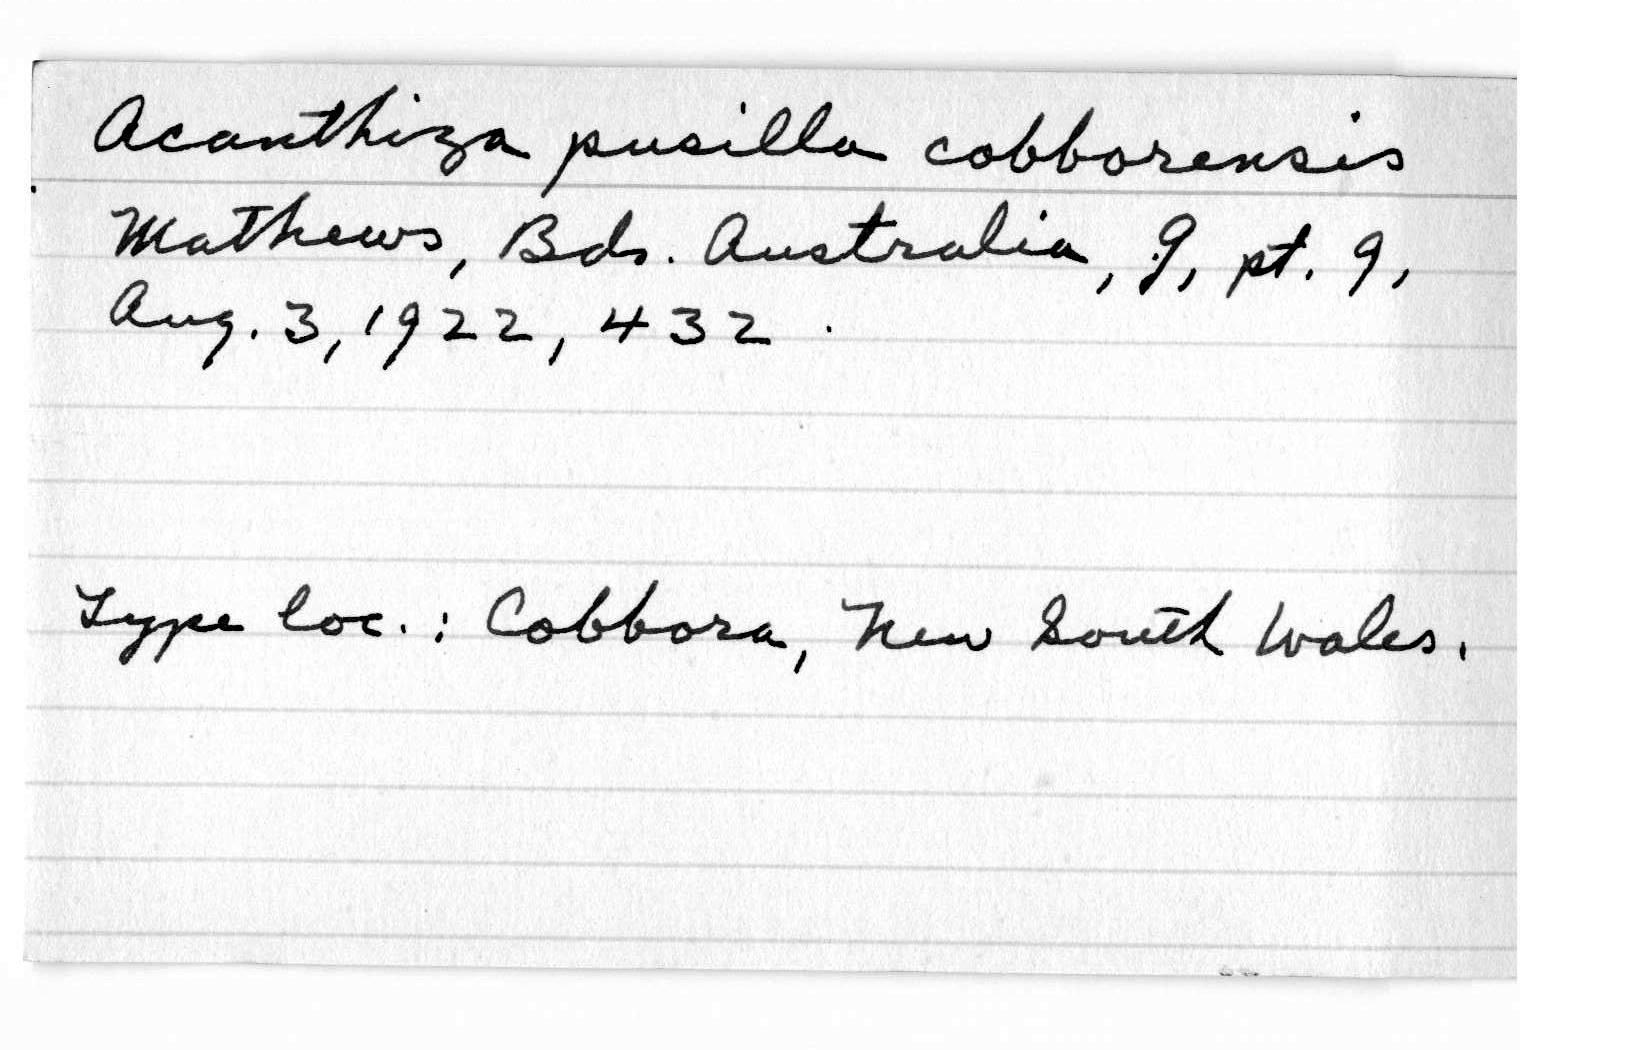 Acanthiza pusilla cobborensis
Mathews, Bds. Australia, 9, pt. 9,
Aug. 3, 1922, 432.
Type loc.: Cobbora, New South Wales.